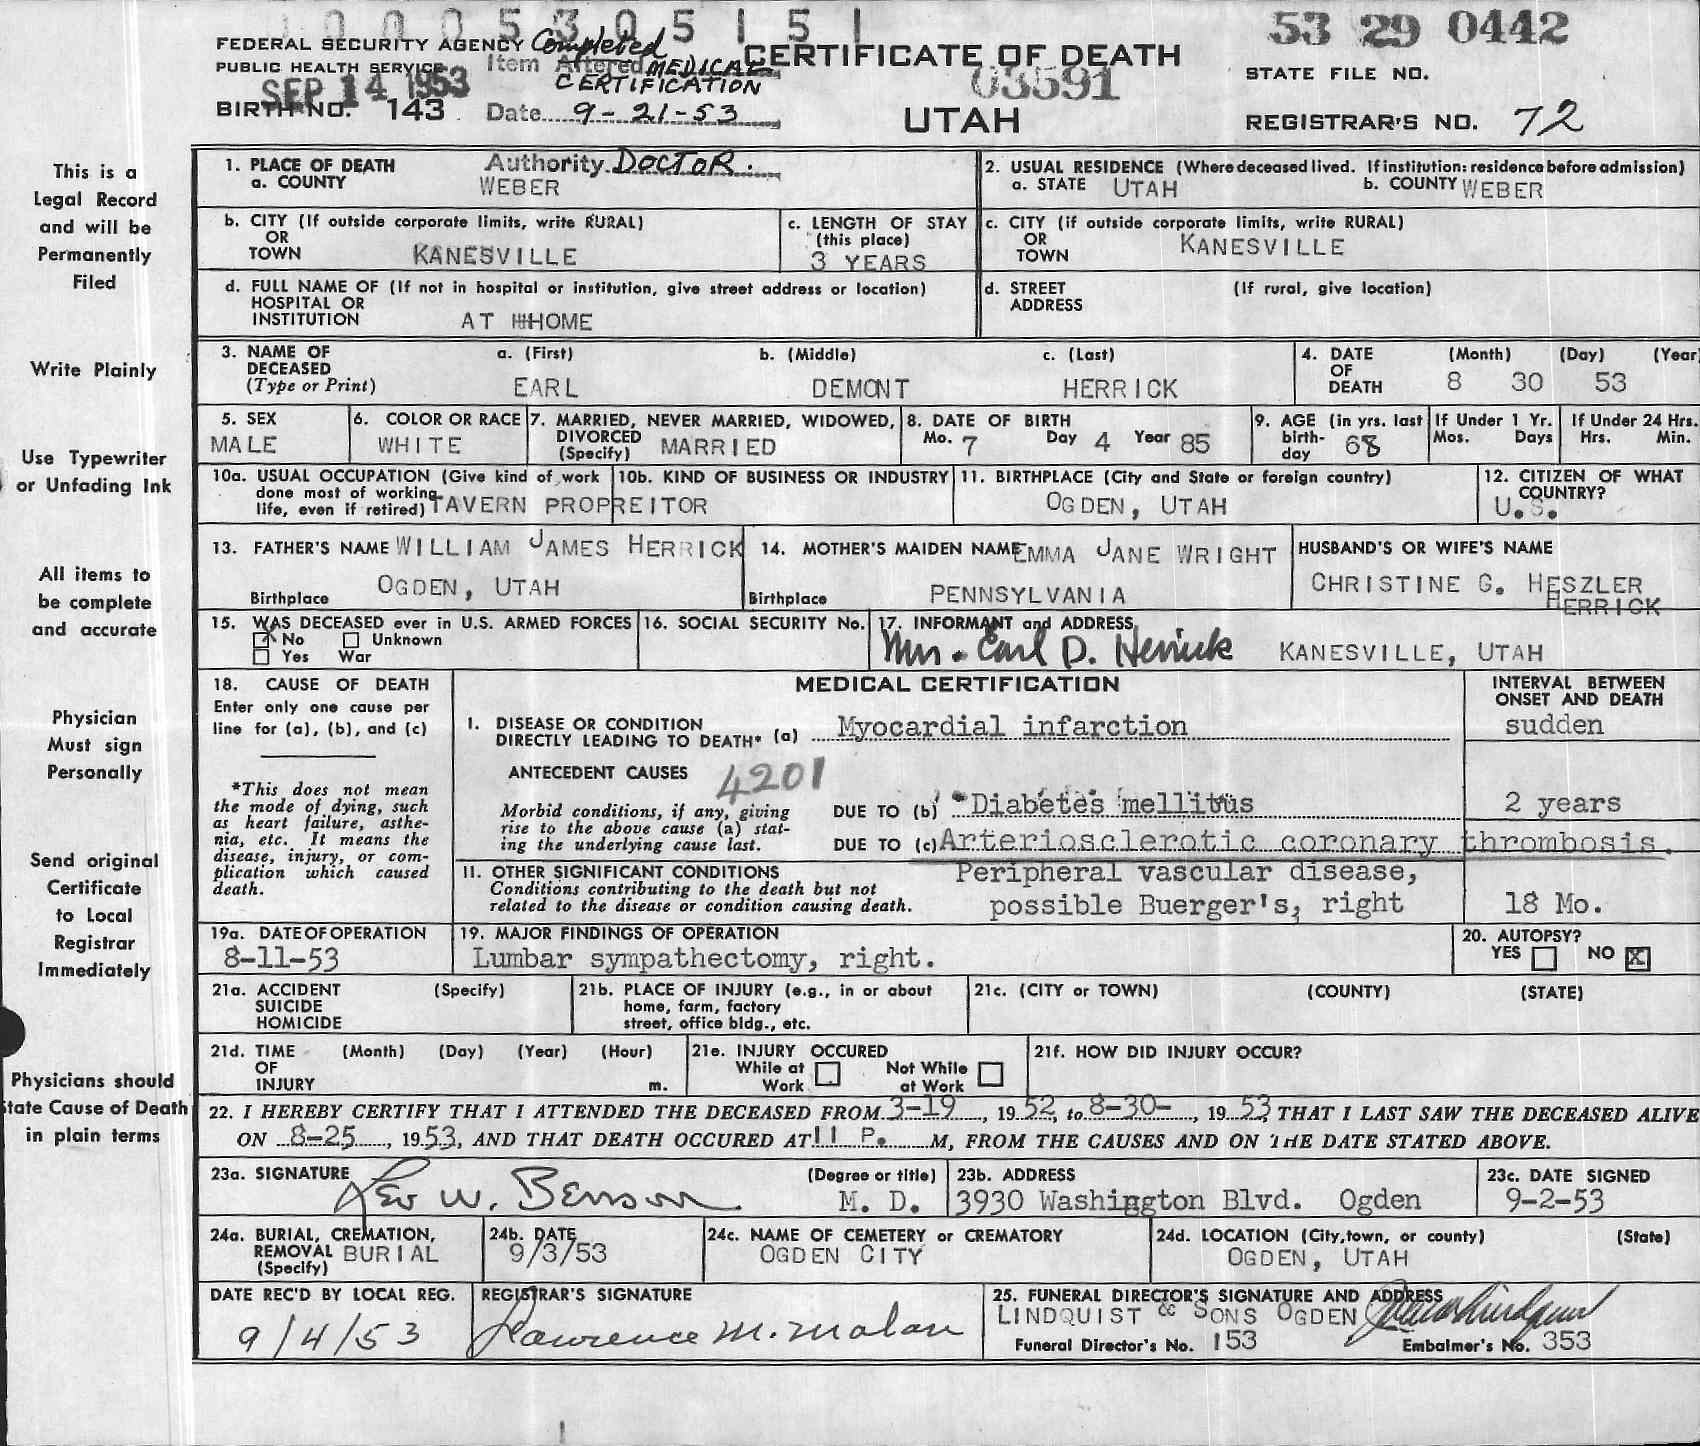 1 0 0 0 5 3 0 5 1 5 1
53 29 0442
FEDERAL SECURITY AGENCY Completed
PUBLIC HEALTH SERVICE Item Altered MEDICAL
CERTIFICATION
SEP 14 1953
BIRTH NO. 143 Date 9-21-53
CERTIFICATE OF DEATH
03591
UTAH
STATE FILE NO.
REGISTRAR'S NO. 72
This is a
Legal Record
and will be
Permanently
Filed
Write Plainly
Use Typewriter
or Unfading Ink
All items to
be complete
and accurate
Physician
Must sign
Personally
Send original
Certificate
to Local
Registrar
Immediately
Physicians should
State Cause of Death
in plain terms
1. PLACE OF DEATH Authority DOCTOR.
a. COUNTY WEBER
2. USUAL RESIDENCE (Where deceased lived. If institution: residence before admission)
a. STATE UTAH b. COUNTY WEBER
b. CITY (If outside corporate limits, write RURAL)
OR
TOWN KANESVILLE
c. LENGTH OF STAY
(this place)
3 YEARS
c. CITY (if outside corporate limits, write RURAL)
OR
TOWN KANESVILLE
d. FULL NAME OF (If not in hospital or institution, give street address or location)
HOSPITAL OR
INSTITUTION AT HOME
d. STREET (If rural, give location)
ADDRESS
3. NAME OF a. (First) b. (Middle) c. (Last)
DECEASED
(Type or Print) EARL DEMONT HERRICK
4. DATE (Month) (Day) (Year)
OF
DEATH 8 30 53
5. SEX
MALE
6. COLOR OR RACE
WHITE
7. MARRIED, NEVER MARRIED, WIDOWED,
DIVORCED
(Specify) MARRIED
8. DATE OF BIRTH
Mo. 7 Day 4 Year 85
9. AGE (in yrs. last
birth-
day 68
If Under 1 Yr.
Mos. Days
If Under 24 Hrs.
Hrs. Min.
10a. USUAL OCCUPATION (Give kind of work
done most of working
life, even if retired) TAVERN PROPREITOR
10b. KIND OF BUSINESS OR INDUSTRY
11. BIRTHPLACE (City and State or foreign country)
OGDEN, UTAH
12. CITIZEN OF WHAT
COUNTRY?
U.S.
13. FATHER'S NAME WILLIAM JAMES HERRICK
Birthplace OGDEN, UTAH
14. MOTHER'S MAIDEN NAME EMMA JANE WRIGHT
Birthplace PENNSYLVANIA
HUSBAND'S OR WIFE'S NAME
CHRISTINE G. HESZLER
HERRICK
15. WAS DECEASED ever in U.S. ARMED FORCES
No Unknown
Yes War
16. SOCIAL SECURITY No.
17. INFORMANT and ADDRESS
Mrs. Earl D. Herrick KANESVILLE, UTAH
18. CAUSE OF DEATH
Enter only one cause per
line for (a), (b), and (c)
*This does not mean
the mode of dying, such
as heart failure, asthe-
nia, etc. It means the
disease, injury, or com-
plication which caused
death.
MEDICAL CERTIFICATION
INTERVAL BETWEEN
ONSET AND DEATH
I. DISEASE OR CONDITION
DIRECTLY LEADING TO DEATH* (a) Myocardial infarction sudden
ANTECEDENT CAUSES 4201
Morbid conditions, if any, giving
rise to the above cause (a) stat-
ing the underlying cause last.
DUE TO (b) Diabetes mellitus 2 years
DUE TO (c) Arteriosclerotic coronary thrombosis.
II. OTHER SIGNIFICANT CONDITIONS
Conditions contributing to the death but not
related to the disease or condition causing death.
Peripheral vascular disease,
possible Buerger's, right 18 Mo.
19a. DATE OF OPERATION
8-11-53
19. MAJOR FINDINGS OF OPERATION
Lumbar sympathectomy, right.
20. AUTOPSY?
YES NO X
21a. ACCIDENT (Specify)
SUICIDE
HOMICIDE
21b. PLACE OF INJURY (e.g., in or about
home, farm, factory
street, office bldg., etc.
21c. (CITY or TOWN) (COUNTY) (STATE)
21d. TIME (Month) (Day) (Year) (Hour)
OF
INJURY m.
21e. INJURY OCCURED
While at Not While
Work at Work
21f. HOW DID INJURY OCCUR?
22. I HEREBY CERTIFY THAT I ATTENDED THE DECEASED FROM 3-19, 1952, to 8-30-, 1953, THAT I LAST SAW THE DECEASED ALIVE
ON 8-25, 1953, AND THAT DEATH OCCURED AT 11 P. M, FROM THE CAUSES AND ON THE DATE STATED ABOVE.
23a. SIGNATURE (Degree or title)
Leo W. Benson M. D.
23b. ADDRESS
3930 Washington Blvd. Ogden
23c. DATE SIGNED
9-2-53
24a. BURIAL, CREMATION,
REMOVAL BURIAL
(Specify)
24b. DATE
9/3/53
24c. NAME OF CEMETERY or CREMATORY
OGDEN CITY
24d. LOCATION (City, town, or county) (State)
OGDEN, UTAH
DATE REC'D BY LOCAL REG.
9/4/53
REGISTRAR'S SIGNATURE
Lawrence M. Malan
25. FUNERAL DIRECTOR'S SIGNATURE AND ADDRESS
LINDQUIST & SONS OGDEN
Funeral Director's No. 153 Embalmer's No. 353